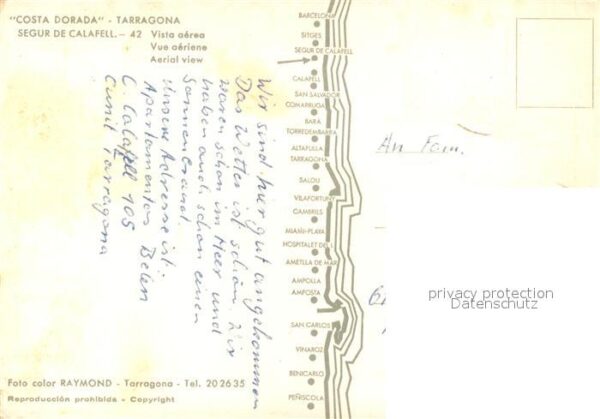 "COSTA DORADA" - TARRAGONA
SEGUR DE CALAFELL. - 42 Vista aérea
Vue aériene
Aerial view
Wir sind hier gut angekommen
Das Wetter ist schön. Wir
waren schon im Meer und
haben auch schon einen
Sonnenbrand.
Unsere Adresse ist:
Apartamentos Belen
C. Calafell 105
Cunit Tarragona
Foto color RAYMOND - Tarragona - Tel. 202635
Reproducción prohibida - Copyright
BARCELONA
SITGES
SEGUR DE CALAFELL
CALAFELL
SAN SALVADOR
COMARRUGA
BARÁ
TORREDEMBARRA
ALTAFULLA
TARRAGONA
SALOU
VILAFORTUNY
CAMBRILS
MIAMI-PLAYA
HOSPITALET DE L.
AMETLLA DE MAR
AMPOLLA
AMPOSTA
SAN CARLOS
VINAROZ
BENICARLO
PEÑISCOLA
An Fam.
privacy protection
Datenschutz